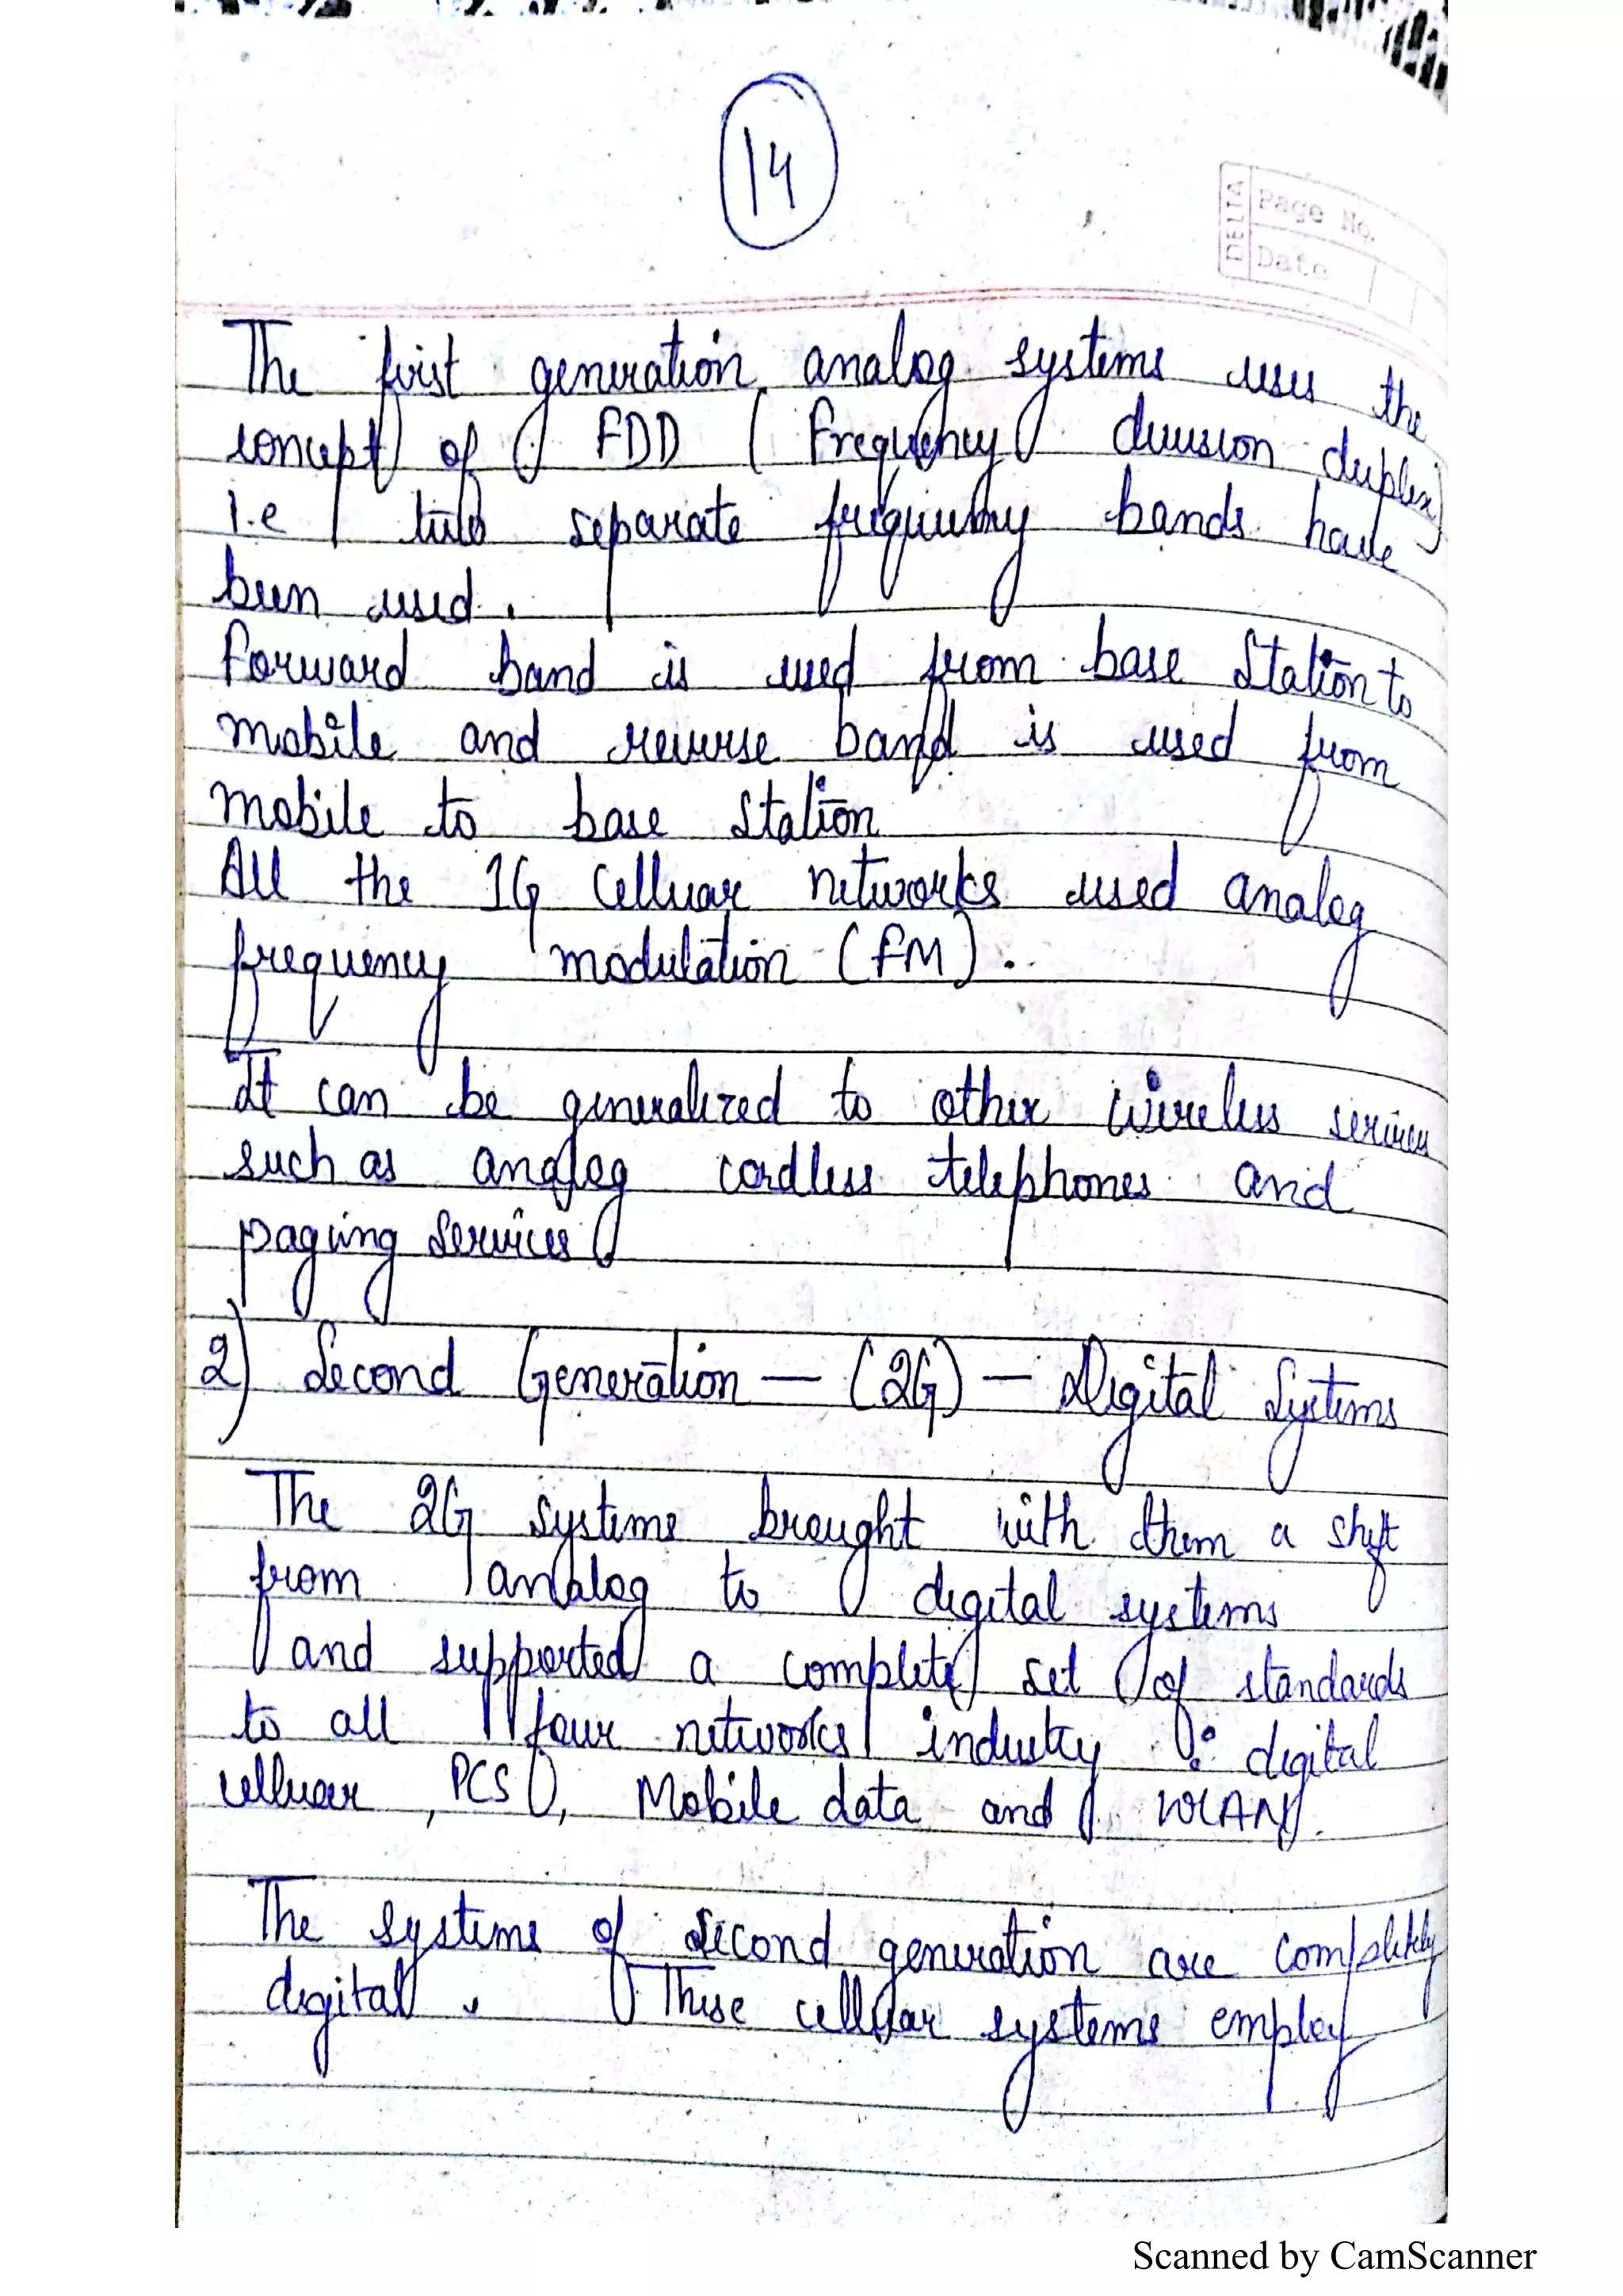 14
DELTA
Page No.
Date
The first generation analog systems uses the
concept of FDD ( Frequency division duplex)
i.e two separate frequency bands have
been used.
Forward band is used from base station to
mobile and reverse band is used from
mobile to base station
All the 1G Celluar networks used analog
frequency modulation (FM).
It can be generalized to other wireless services
such as analog cordless telephones and
paging services.
2) Second Generation — (2G) — Digital Systems
The 2G systems brought with them a shift
from analog to digital systems
and supported a complete set of standards
to all four networks industry : digital
celluar, PCS, Mobile data and WLAN.
The systems of second generation are completely
digital. These celluar systems employ
Scanned by CamScanner